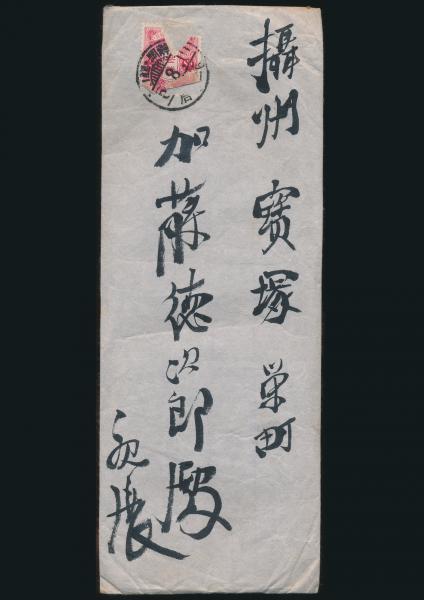 攝州 寳塚 栄町
加藤德次郎殿
親展